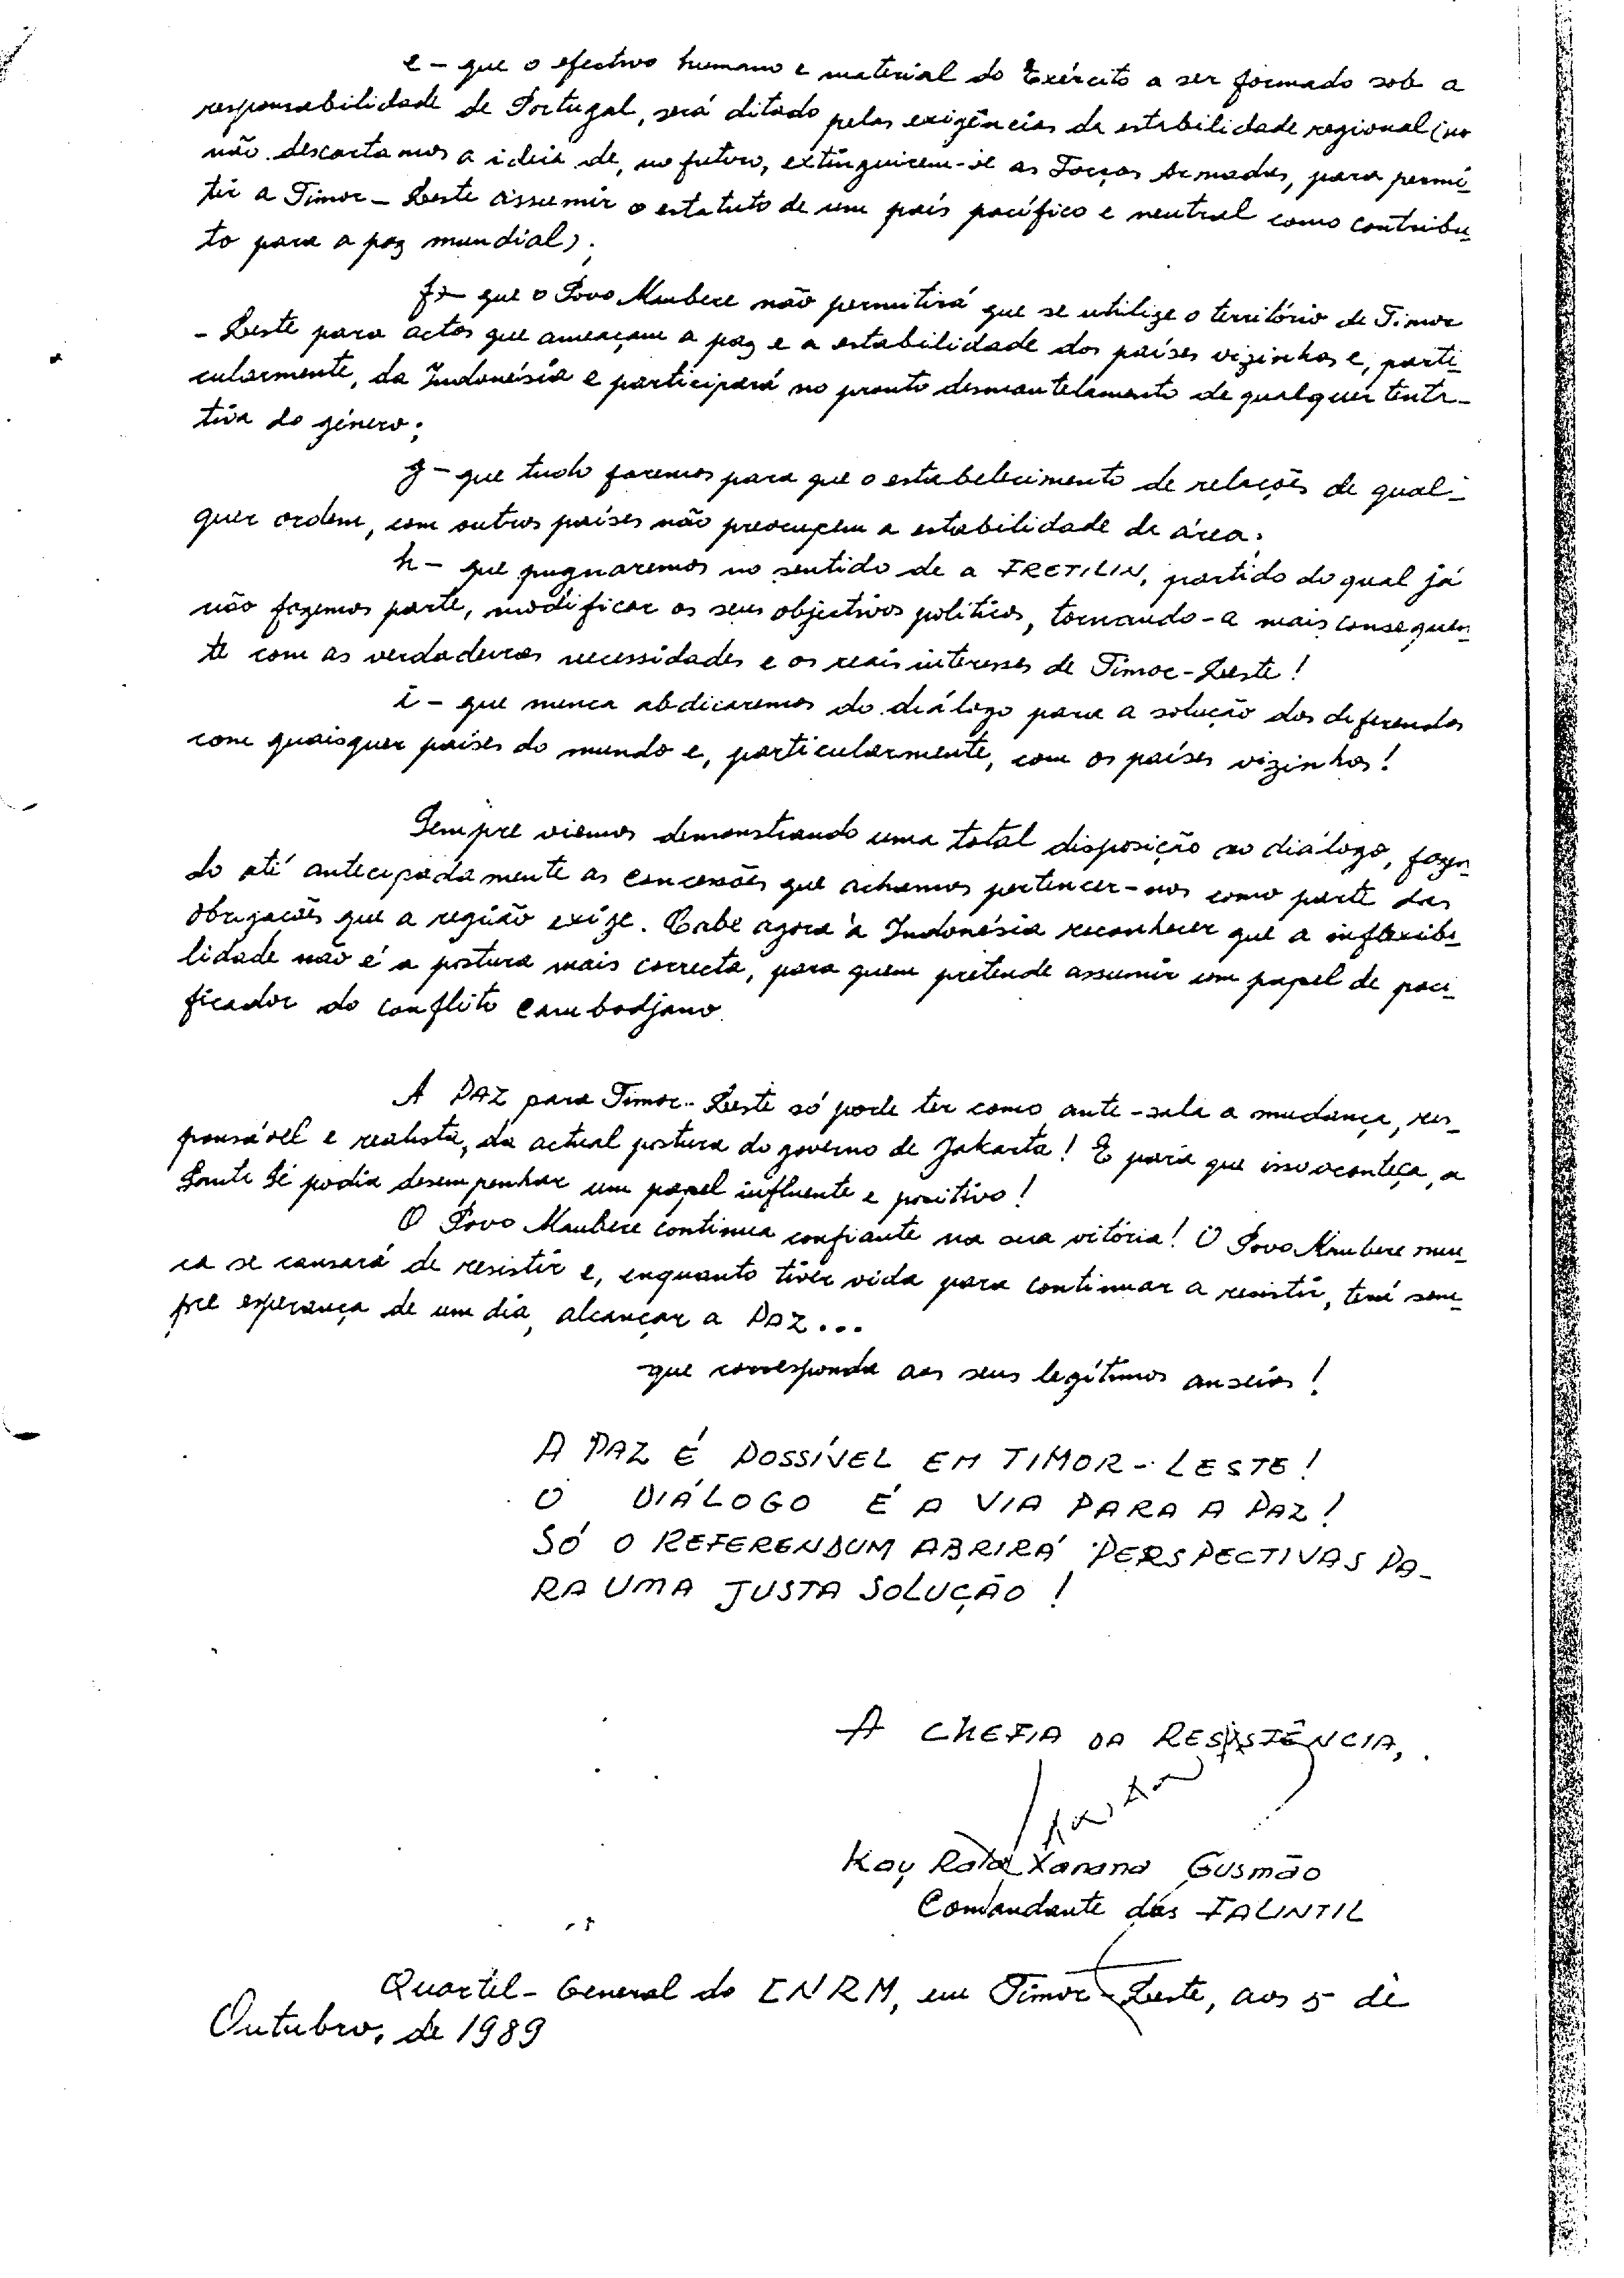 e – que o efectivo humano e material do Exército a ser formado sob a
responsabilidade de Portugal, será ditado pelas exigências da estabilidade regional (no
não descartamos a ideia de, no futuro, extinguirem-se as Forças Armadas, para permi-
tir a Timor-Leste assumir o estatuto de um país pacífico e neutral como contribu-
to para a paz mundial);
f – que o Povo Maubere não permitirá que se utilize o território de Timor
- Leste para actos que ameaçam a paz e a estabilidade dos países vizinhos e, parti-
cularmente, da Indonésia e participará no pronto desmantelamento de qualquer tenta-
tiva do género;
g – que tudo faremos para que o estabelecimento de relações de qual-
quer ordem, com outros países não preocupem a estabilidade da área;
h – que pugnaremos no sentido de a FRETILIN, partido do qual já
não fazemos parte, modificar os seus objectivos políticos, tornando-a mais consequen-
te com as verdadeiras necessidades e os reais interesses de Timor-Leste!
i – que nunca abdicaremos do diálogo para a solução dos diferendos
com quaisquer países do mundo e, particularmente, com os países vizinhos!
Sempre viemos demonstrando uma total disposição ao diálogo, fazen-
do até antecipadamente as concessões que achamos pertencer-nos como parte das
obrigações que a região exige. Cabe agora à Indonésia reconhecer que a inflexibi-
lidade não é a postura mais correcta, para quem pretende assumir um papel de paci-
ficador do conflito cambodjano.
A PAZ para Timor-Leste só pode ter como ante-sala a mudança, res-
ponsável e realista, da actual postura do governo de Jakarta! E para que isso aconteça, a
Santa Sé podia desempenhar um papel influente e positivo!
O Povo Maubere continua confiante na sua vitória! O Povo Maubere nun-
ca se cansará de resistir e, enquanto tiver vida para continuar a resistir, terá sem-
pre esperança de um dia, alcançar a PAZ...
que corresponda aos seus legítimos anseios!
A PAZ É POSSÍVEL EM TIMOR-LESTE!
O DIÁLOGO É A VIA PARA A PAZ!
SÓ O REFERENDUM ABRIRÁ PERSPECTIVAS PA-
RA UMA JUSTA SOLUÇÃO!
A CHEFIA DA RESISTÊNCIA,
Kay Rala Xanana Gusmão
Comandante das FALINTIL
Quartel-General do CNRM, em Timor-Leste, aos 5 de
Outubro, de 1989